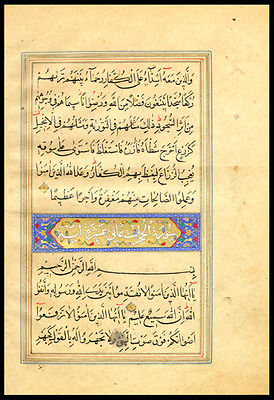 والذين معه أشداء على الكفار رحماء بينهم تريهم
ركعا سجدا يبتغون فضلا من الله ورضوانا سيماهم في وجوههم
من أثر السجود ذلك مثلهم في التورية ومثلهم في الإنجيل
كزرع أخرج شطأه فآزره فاستغلظ فاستوى على سوقه
يعجب الزراع ليغيظ بهم الكفار وعد الله الذين آمنوا
وعملوا الصالحات منهم مغفرة وأجرا عظيما
سورة الحجرات ثماني عشرة آية
بسم الله الرحمن الرحيم
يا أيها الذين آمنوا لا تقدموا بين يدي الله ورسوله واتقوا
الله إن الله سميع عليم يا أيها الذين آمنوا لا ترفعوا
أصواتكم فوق صوت النبي ولا تجهروا له بالقول كجهر